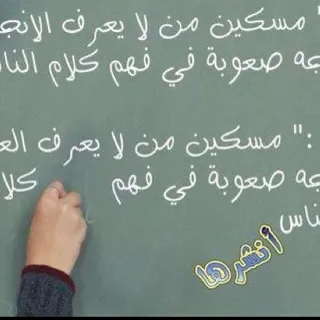 " مسكين من لا يعرف الإنج
جه صعوبة في فهم كلام النا
:" مسكين من لا يعرف الع
جه صعوبة في فهم كلا
ناس
أنشرها